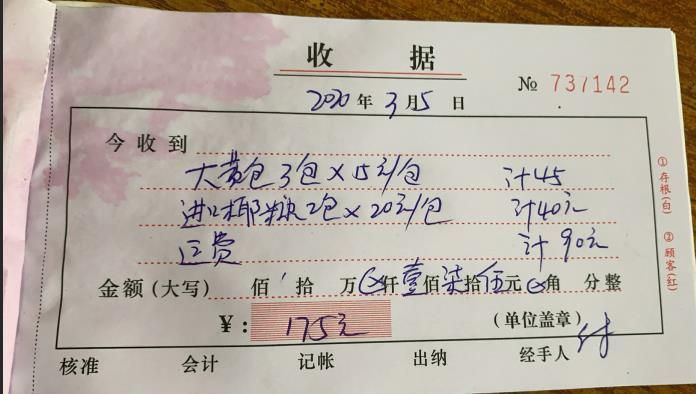 收 据
№ 737142
2020 年 3 月 5 日
今 收 到
大黄包 3包 × 15元/包 计45
进口椰糠 2包 × 20元/包 计40元
运费 计 90元
金额(大写) 佰 拾 万 仟 壹 佰 柒 拾 伍 元 角 分 整
¥: 175元 (单位盖章)
核准 会计 记帐 出纳 经手人
①存根(白) ②顾客(红)